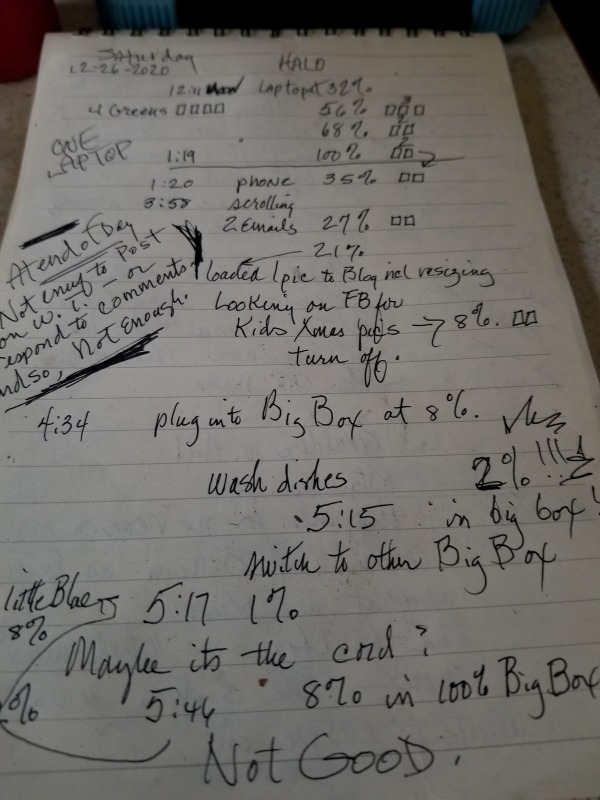 Saturday
12-26-2020
HALO
Laptop at 32%
4 Greens □□□□ 56% □□□
68% □□
ONE
LAPTOP
1:19 100% □□
1:20 phone 35% □□
3:58 scrolling
2 Emails 27% □□
21%
At end of Day
Not enuf to Post
on W.L. - or
respond to comments
and so, Not Enough.
loaded 1 pic to Blog incl resizing
Looking on FB for
Kids Xmas pics → 8%. □□
turn off.
4:34 plug into Big Box at 8%.
wash dishes 2% !!!
5:15 in big box!
switch to other Big Box
little Blue
8%
5:17 1%
Maybe its the cord?
%
5:46 8% in 100% Big Box
Not GOOD.